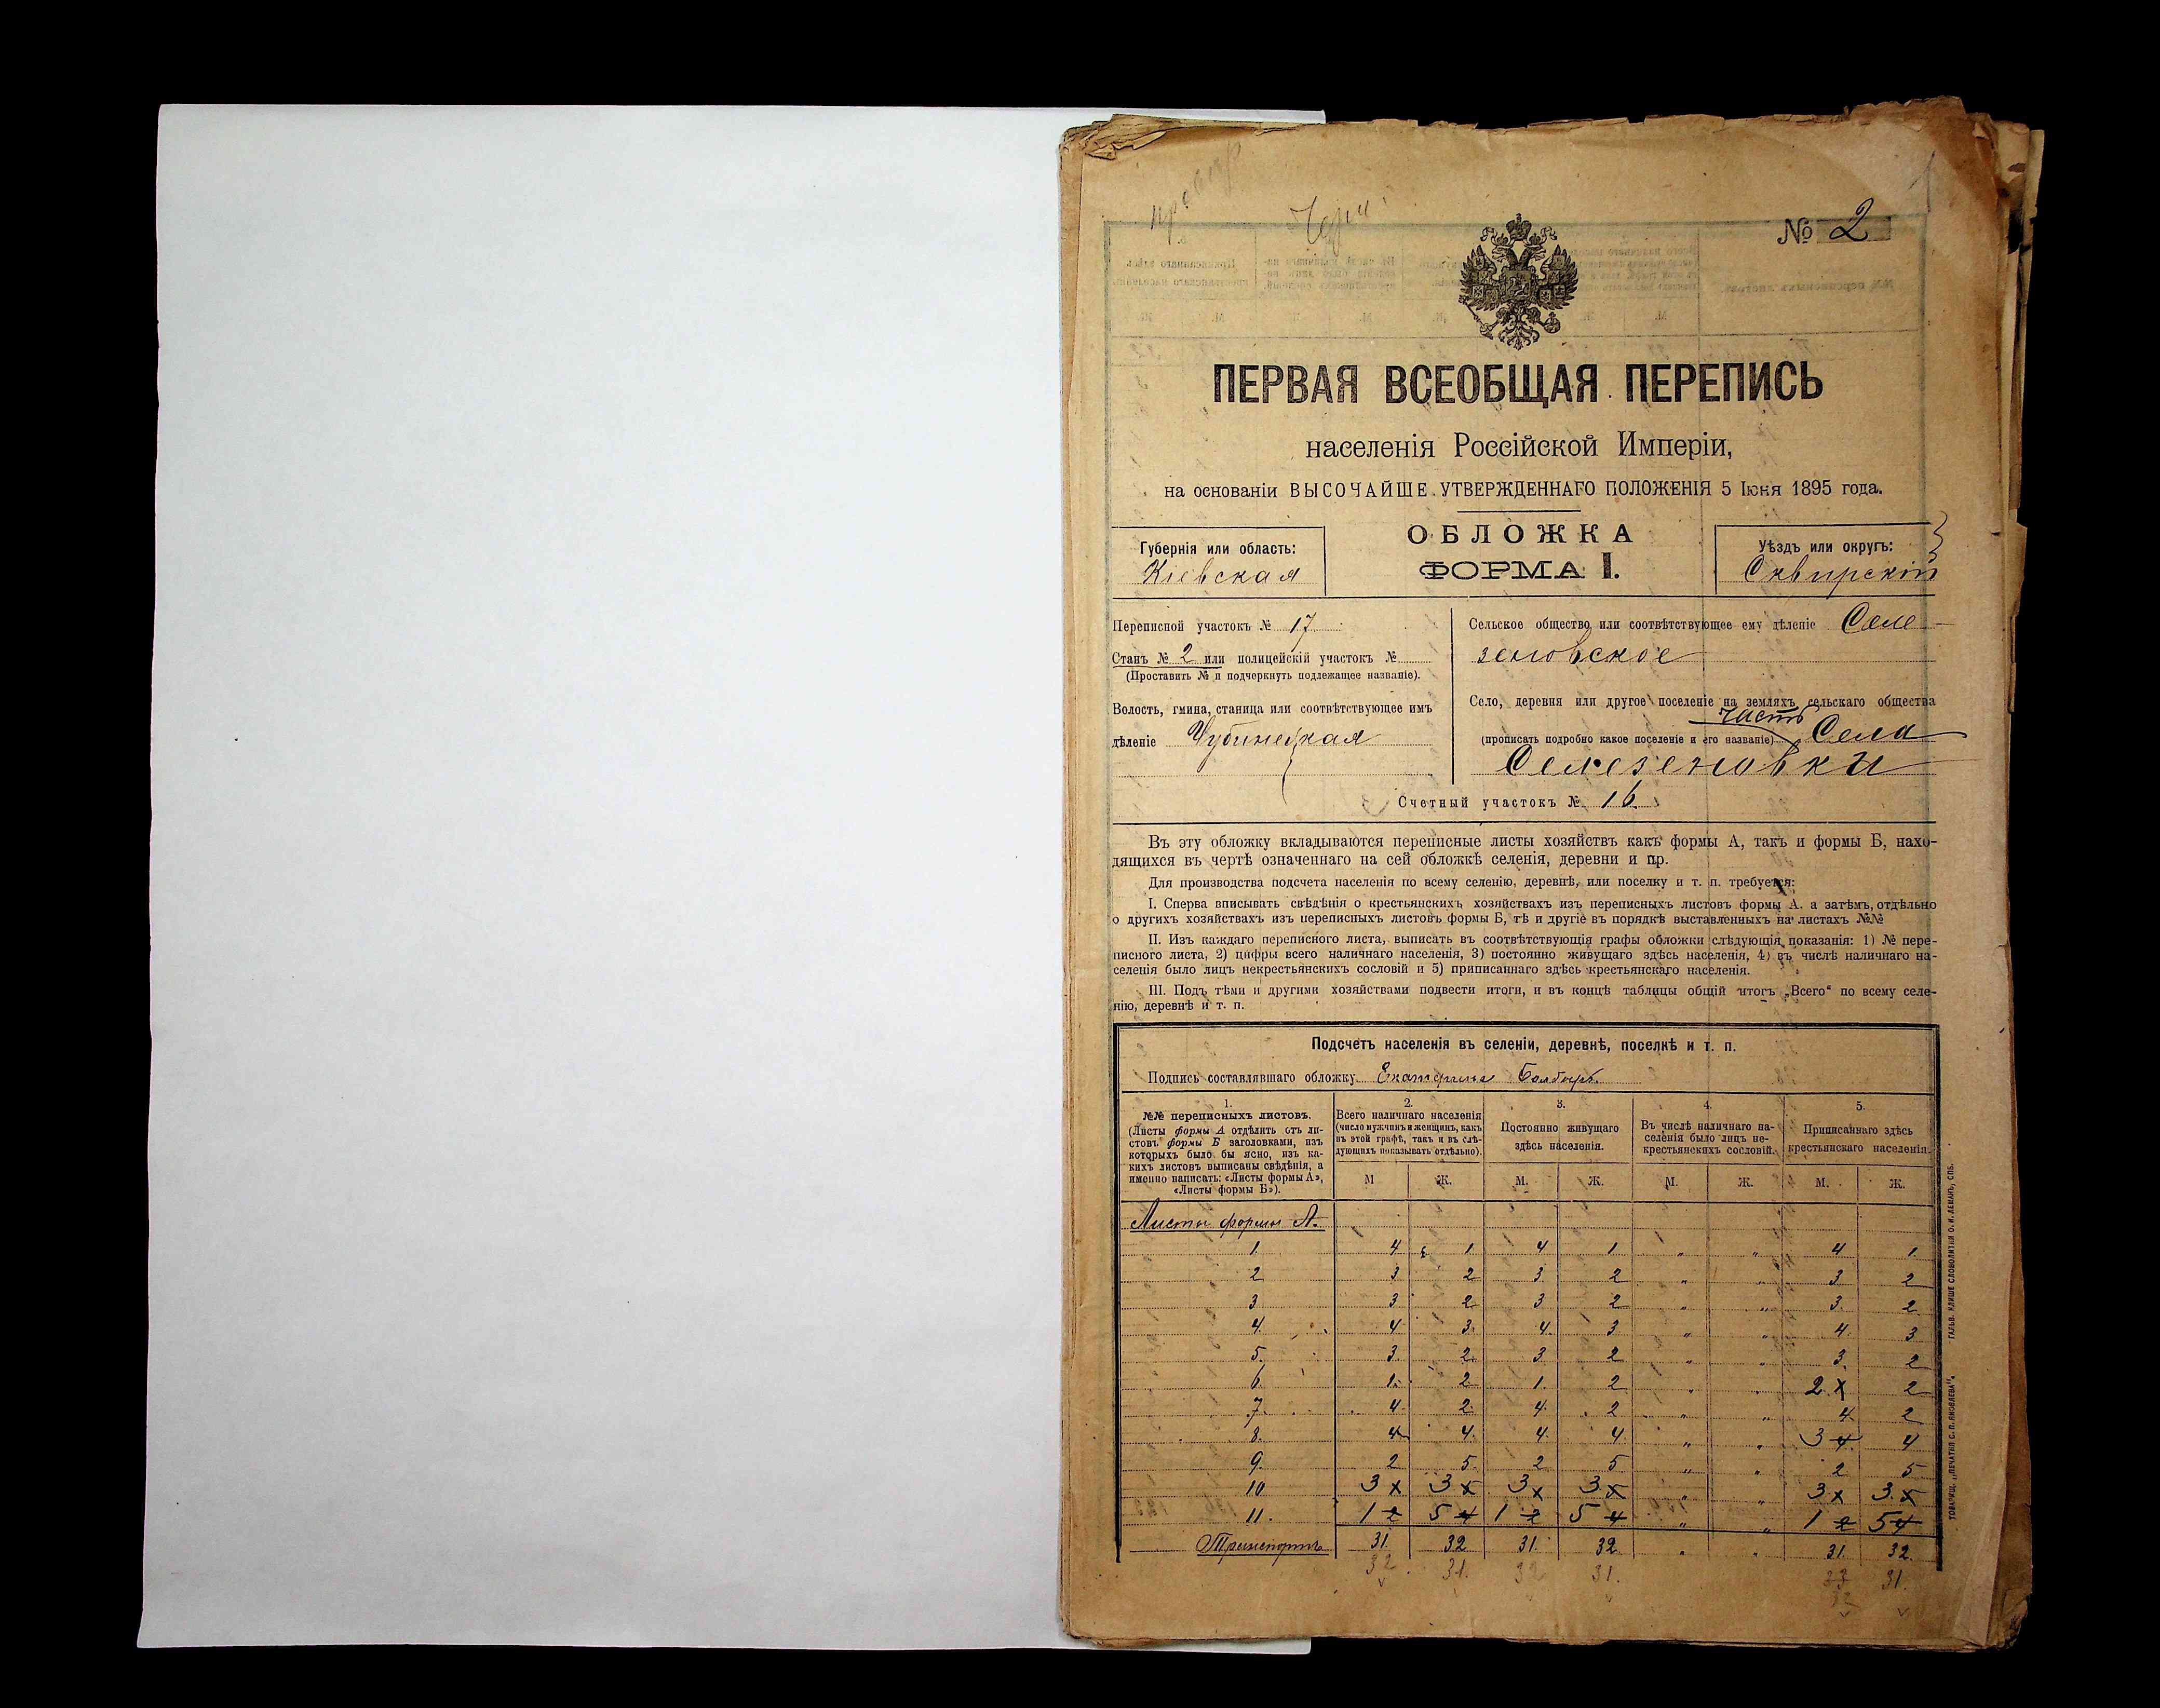 № 2
ПЕРВАЯ ВСЕОБЩАЯ ПЕРЕПИСЬ
населенія Россійской Имперіи,
на основаніи ВЫСОЧАЙШЕ УТВЕРЖДЕННАГО ПОЛОЖЕНІЯ 5 Іюня 1895 года.
ОБЛОЖКА
ФОРМА I.
Губернія или область:
Кіевская
Уѣздъ или округъ:
Сквирскій
Переписной участокъ № 17
Станъ № 2 или полицейскій участокъ №
(Проставить № и подчеркнуть подлежащее названіе).
Волость, гмина, станица или соотвѣтствующее имъ
дѣленіе Чубинецкая
Сельское общество или соотвѣтствующее ему дѣленіе Селе-
зеновское
Село, деревня или другое поселеніе на земляхъ сельскаго общества
(прописать подробно какое поселеніе и его названіе) часть Села
Селезеновки
Счетный участокъ № 16
Въ эту обложку вкладываются переписные листы хозяйствъ какъ формы А, такъ и формы Б, нахо-
дящихся въ чертѣ означеннаго на сей обложкѣ селенія, деревни и пр.
Для производства подсчета населенія по всему селенію, деревнѣ, или поселку и т. п. требуется:
I. Сперва вписывать свѣдѣнія о крестьянскихъ хозяйствахъ изъ переписныхъ листовъ формы А. а затѣмъ, отдѣльно
о другихъ хозяйствахъ изъ переписныхъ листовъ формы Б, тѣ и другіе въ порядкѣ выставленныхъ на листахъ №№
II. Изъ каждаго переписного листа, выписать въ соотвѣтствующія графы обложки слѣдующія показанія: 1) № пере-
писного листа, 2) цифры всего наличнаго населенія, 3) постоянно живущаго здѣсь населенія, 4) въ числѣ наличнаго на-
селенія было лицъ некрестьянскихъ сословій и 5) приписаннаго здѣсь крестьянскаго населенія.
III. Подъ тѣми и другими хозяйствами подвести итоги, и въ концѣ таблицы общій итогъ „Всего“ по всему селе-
нію, деревнѣ и т. п.
Подсчетъ населенія въ селеніи, деревнѣ, поселкѣ и т. п.
Подпись составлявшаго обложку Екатерина
1.
№№ переписныхъ листовъ.
(Листы формы А отдѣлить отъ ли-
стовъ формы Б заголовками, изъ
которыхъ было бы ясно, изъ ка-
кихъ листовъ выписаны свѣдѣнія, а
именно написать: «Листы формы А»,
«Листы формы Б»).
2.
Всего наличнаго населенія
(число мужчинъ и женщинъ, какъ
въ этой графѣ, такъ и въ слѣ-
дующихъ показывать отдѣльно).
3.
Постоянно живущаго
здѣсь населенія.
4.
Въ числѣ наличнаго на-
селенія было лицъ не-
крестьянскихъ сословій.
5.
Приписаннаго здѣсь
крестьянскаго населенія.
М Ж. М. Ж. М. Ж. М. Ж.
Листы формы А.
1. 4 1 4 1 „ „ 4 1.
2 3 2 3 2 „ „ 3 2
3 3 2 3 2 „ „ 3. 2
4. 4 3. 4. 3 „ „ 4. 3
5. 3. 2 3 2 „ „ 3. 2
6. 1. 2 1. 2 „ „ 2 2
7. 4 2. 4. 2 „ „ 4. 2
8. 4 4. 4. 4 „ „ 3 4 4
9. 2 5. 2 5 „ „ 2 5
10 3 3 3 3 „ „ 3 3
11. 1 2 5 4 1 2 5 4 „ „ 1 2 5 4
Транспортъ 31. 32 31. 32 „ „ 31. 32.
32 31. 32 31. 33 31.
32
ТОВАРИЩ. „ПЕЧАТНЯ С. П. ЯКОВЛЕВА“.
ГАЛЬВ. КЛИШЕ СЛОВОЛИТНИ О. И. ЛЕМАНЪ, СПБ.